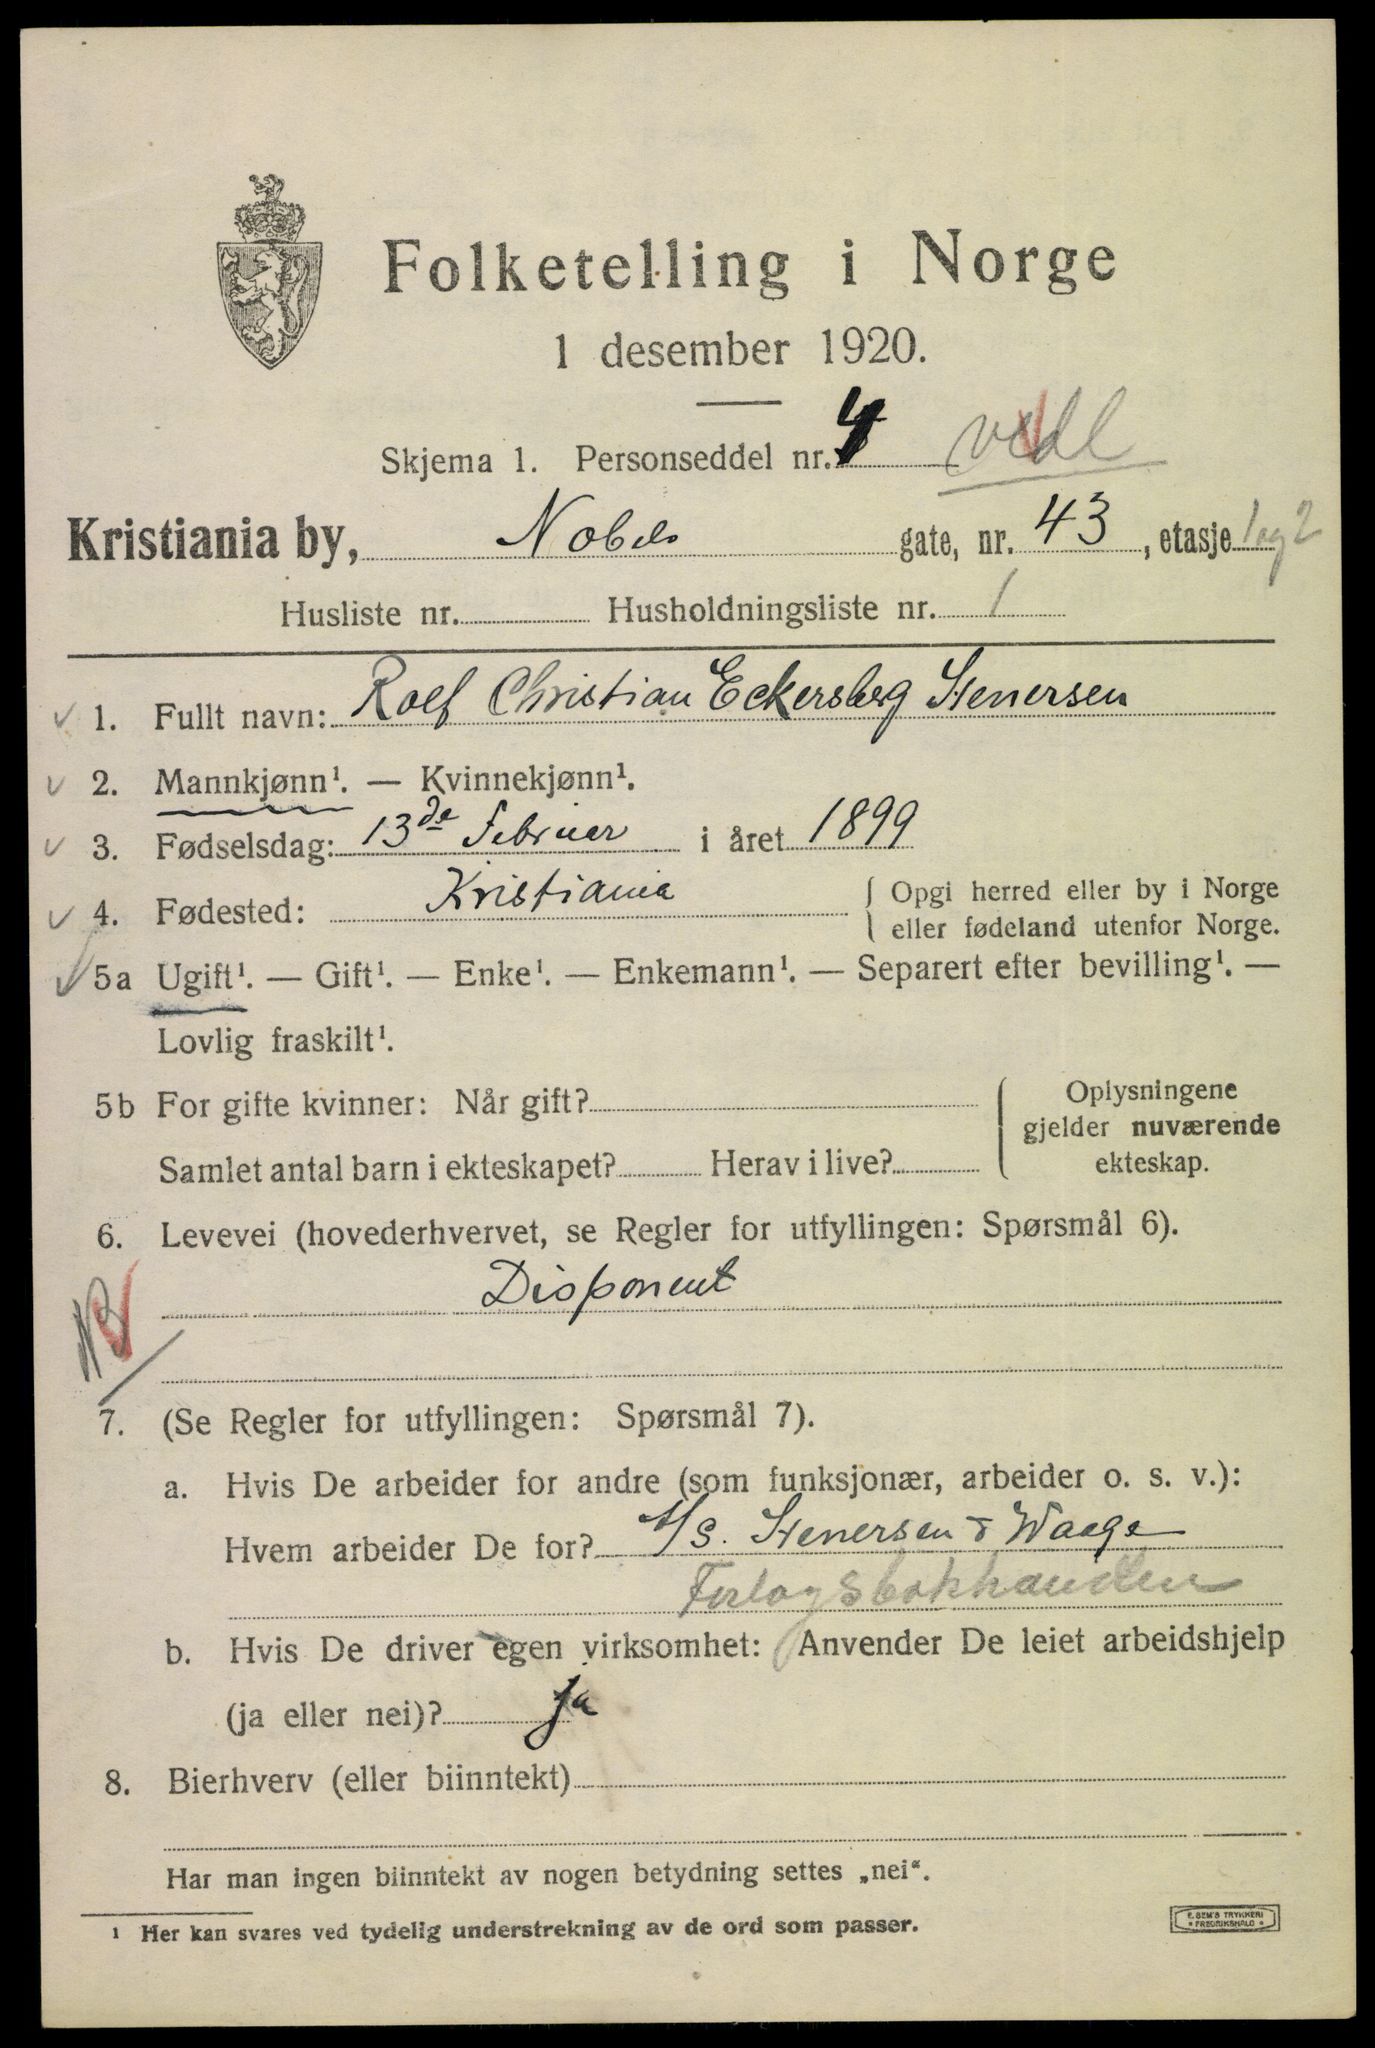 Folketelling i Norge
1 desember 1920.
Skjema 1. Personseddel nr. 4 vedl
Kristiania by, Nobels gate, nr. 43, etasje 1 og 2
Husliste nr. Husholdningsliste nr. 1
1. Fullt navn: Rolf Christian Eckersberg Stenersen
2. Mannkjønn¹. — Kvinnekjønn¹.
3. Fødselsdag: 13de Februar i året 1899
4. Fødested: Kristiania { Opgi herred eller by i Norge
eller fødeland utenfor Norge.
5a Ugift¹. — Gift¹. — Enke¹. — Enkemann¹. — Separert efter bevilling¹. —
Lovlig fraskilt¹.
5b For gifte kvinner: Når gift?
Samlet antal barn i ekteskapet? Herav i live?
{ Oplysningene
gjelder nuværende
ekteskap.
6. Levevei (hovederhvervet, se Regler for utfyllingen: Spørsmål 6).
Disponent
NB
7. (Se Regler for utfyllingen: Spørsmål 7).
a. Hvis De arbeider for andre (som funksjonær, arbeider o. s. v.):
Hvem arbeider De for? A/S. Stenersen & Waage
Forlagsbokhandler
b. Hvis De driver egen virksomhet: Anvender De leiet arbeidshjelp
(ja eller nei)? Ja
8. Bierhverv (eller biinntekt)
Har man ingen biinntekt av nogen betydning settes „nei“.
¹ Her kan svares ved tydelig understrekning av de ord som passer.
E. SEM'S TRYKKERI
* FREDRIKSHALD *